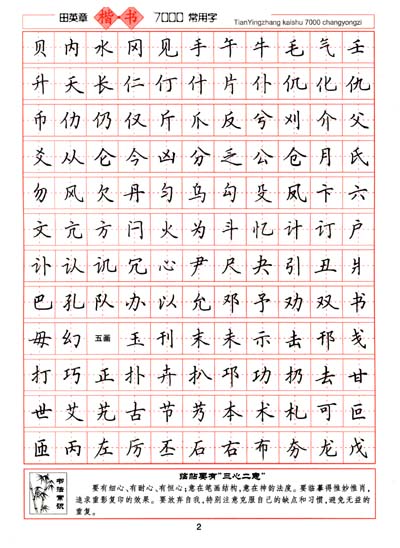 田英章 楷·书 7000 常用字
TianYingzhang kaishu 7000 changyongzi
贝内水冈见手午牛毛气壬
升夭长仁仃什片仆仉化仇
币仂仍仅斤爪反兮刈介父
爻从仑今凶分乏公仓月氏
勿风欠丹匀乌勾殳凤卞六
文亢方闩火为斗忆计订户
讣认讥冗心尹尺夬引丑爿
巴孔队办以允邓予劝双书
毋幻五画玉刊末未示击邗戋
打巧正扑卉扒邛功扔去甘
世艾艽古节艿本术札可叵
匝丙左厉丕石右布夯龙戊
书法常识
临帖要有“三心二意”
要有细心、有耐心、有恒心;意在笔画结构,意在神韵法度。要临摹得惟妙惟肖,
追求重影复印的效果。要放弃自我,特别注意克服自己的缺点和习惯,避免无益的
重复。
2